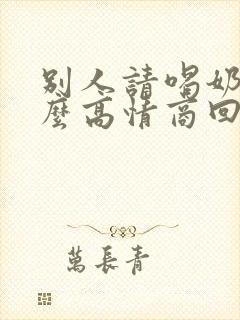 別人請喝奶
麼高情商回
萬長青